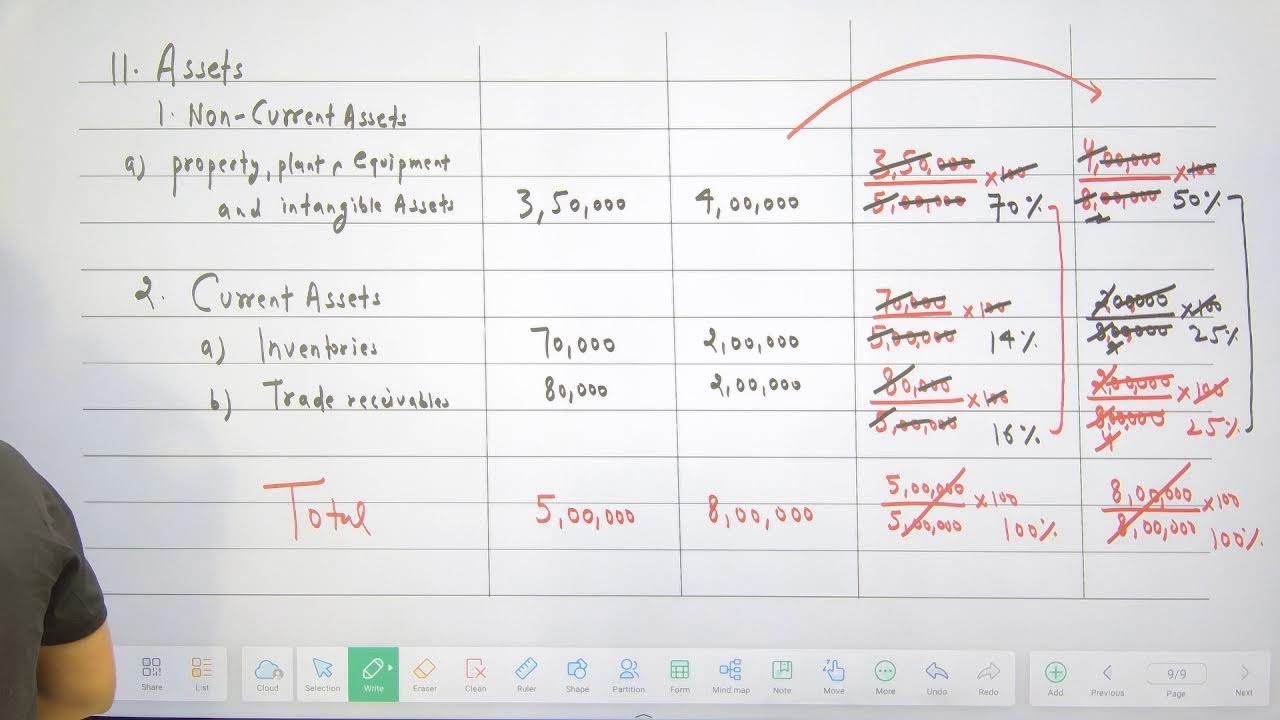 11. Assets
1. Non-Current Assets
a) property, plant & Equipment
3,50,000 × 100
4,00,000 × 100
and intangible Assets 3,50,000 4,00,000 5,00,000 70% 8,00,000 50%
2
2. Current Assets
70,000 × 100
200,000 × 100
a) Inventories 70,000 2,00,000 5,00,000 14% 800,000 25%
4
b) Trade receivables 80,000 2,00,000 80,000 × 100 200,000 × 100
5,00,000 16% 800,000 25%
4
Total 5,00,000 8,00,000 5,00,000 × 100 8,00,000 × 100
5,00,000 100% 8,00,000 100%
Share List Cloud Selection Write Eraser Clean Ruler Shape Partition Form Mind map Note Move More Undo Redo Add Previous 9/9 Page Next